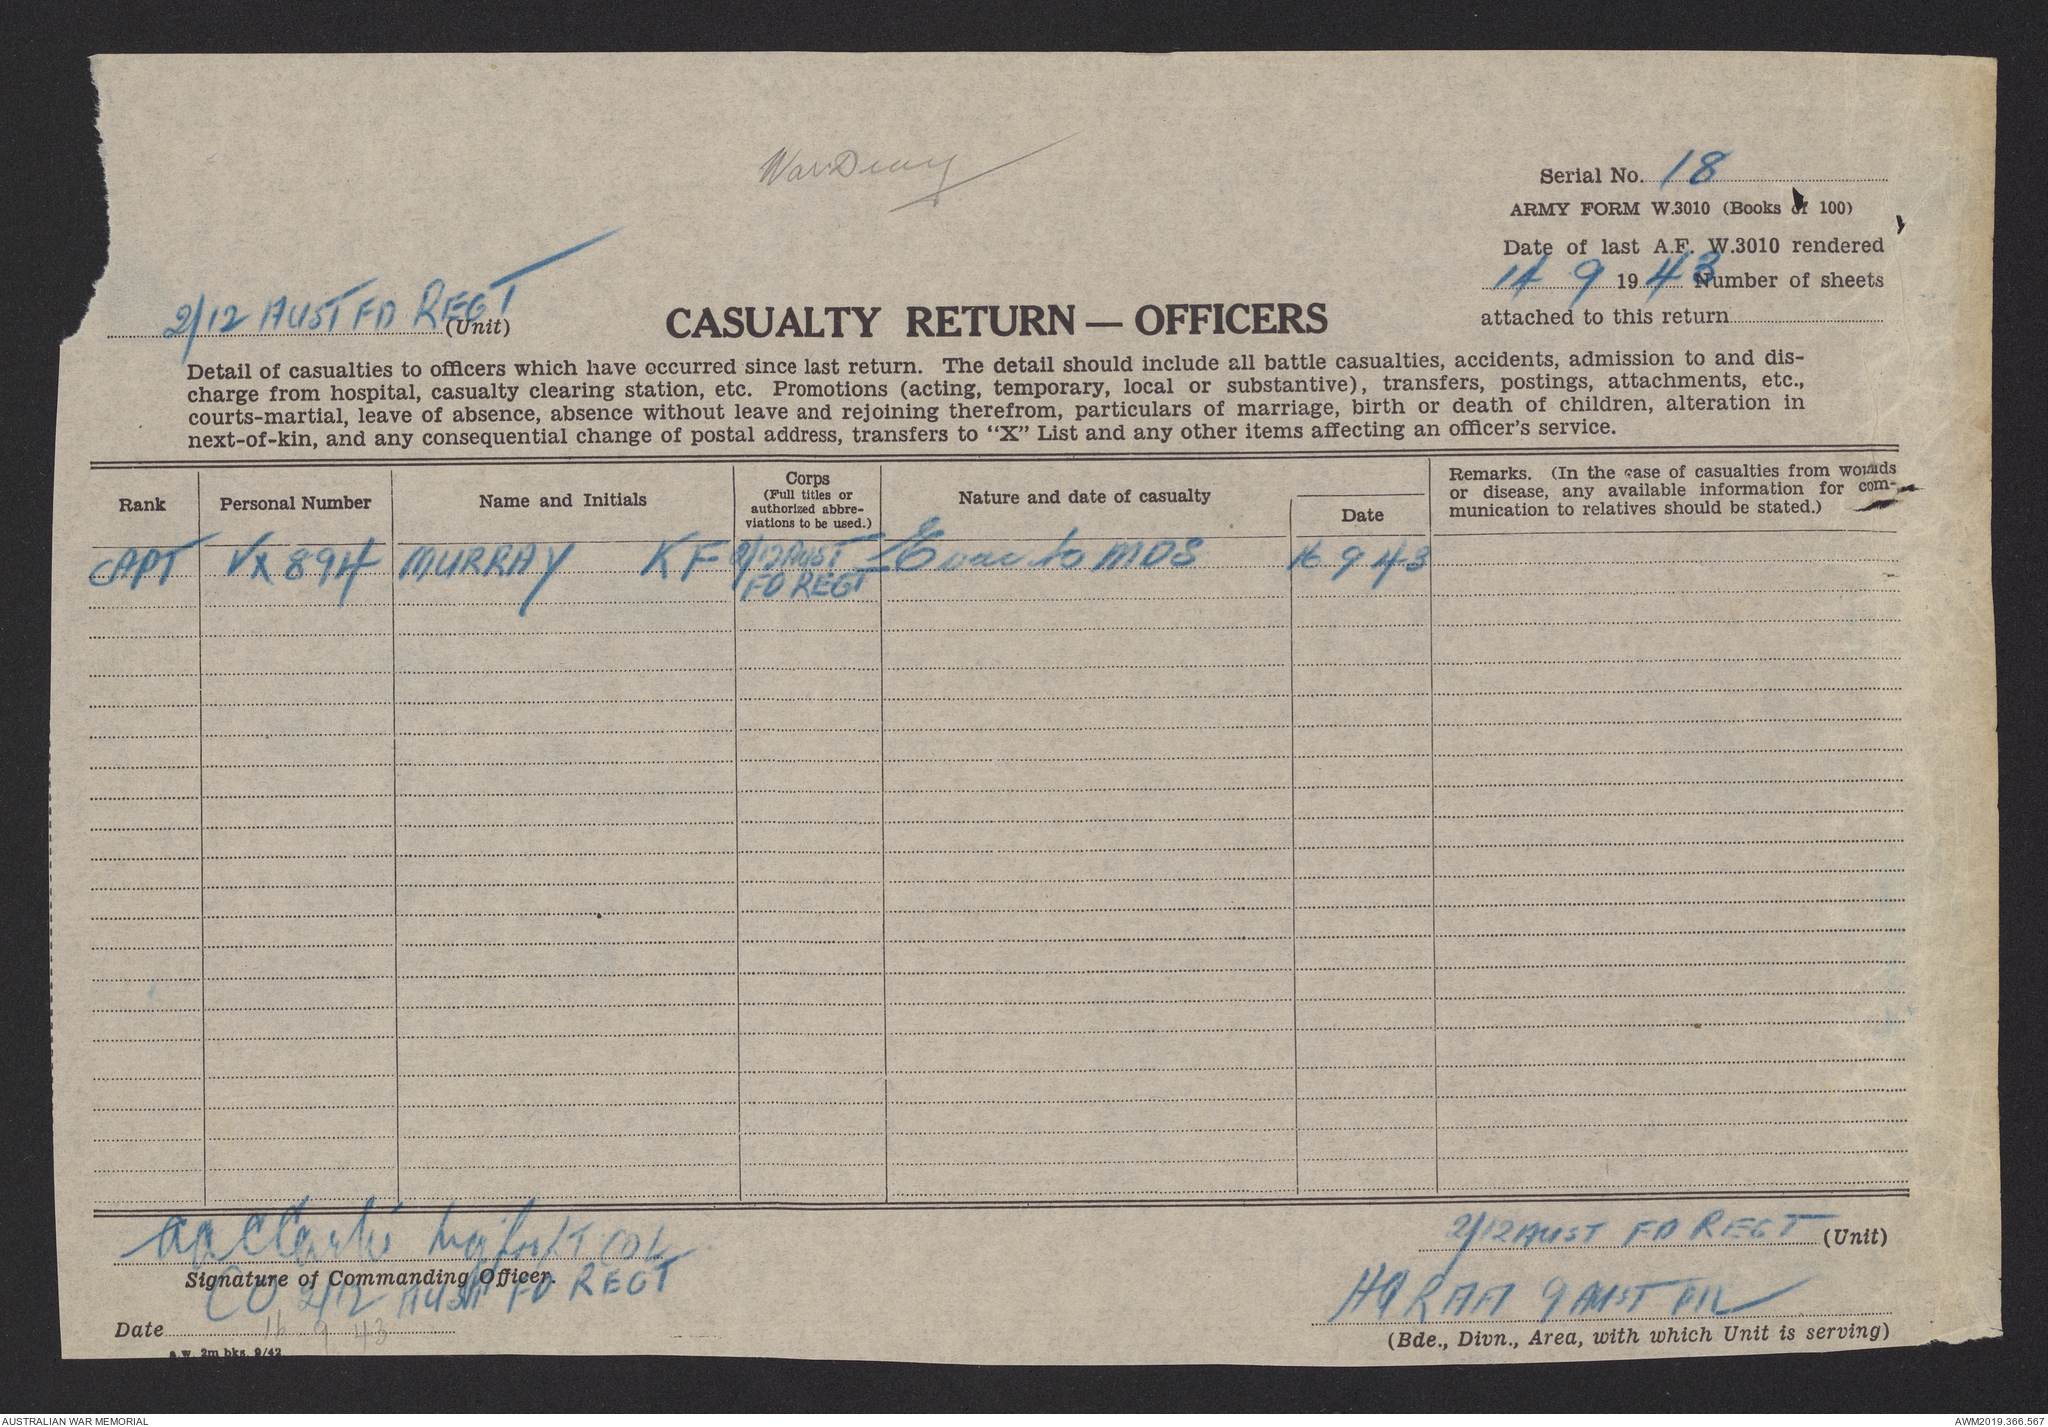 War Diary
Serial No. 18
ARMY FORM W.3010 (Books of 100)
Date of last A.F. W.3010 rendered
14 9 1943 Number of sheets
attached to this return
2/12 AUST FD REGT
(Unit)
CASUALTY RETURN — OFFICERS
Detail of casualties to officers which have occurred since last return. The detail should include all battle casualties, accidents, admission to and dis-
charge from hospital, casualty clearing station, etc. Promotions (acting, temporary, local or substantive), transfers, postings, attachments, etc.,
courts-martial, leave of absence, absence without leave and rejoining therefrom, particulars of marriage, birth or death of children, alteration in
next-of-kin, and any consequential change of postal address, transfers to “X” List and any other items affecting an officer's service.
Rank
Personal Number
Name and Initials
Corps
(Full titles or
authorized abbre-
viations to be used.)
Nature and date of casualty
Date
Remarks. (In the case of casualties from wounds
or disease, any available information for com-
munication to relatives should be stated.)
CAPT VX 894 MURRAY KF 2/12 AUST Evac to MDS 16 9 43
FD REGT
Clarke Maj for LT COL
Signature of Commanding Officer.
CO 2/12 AUST FD REGT
Date 16 9 43
a.w. 2m bks. 9/42
2/12 AUST FD REGT (Unit)
HQ RAA 9 AUST DIV
(Bde., Divn., Area, with which Unit is serving)
AUSTRALIAN WAR MEMORIAL
AWM2019.366.567